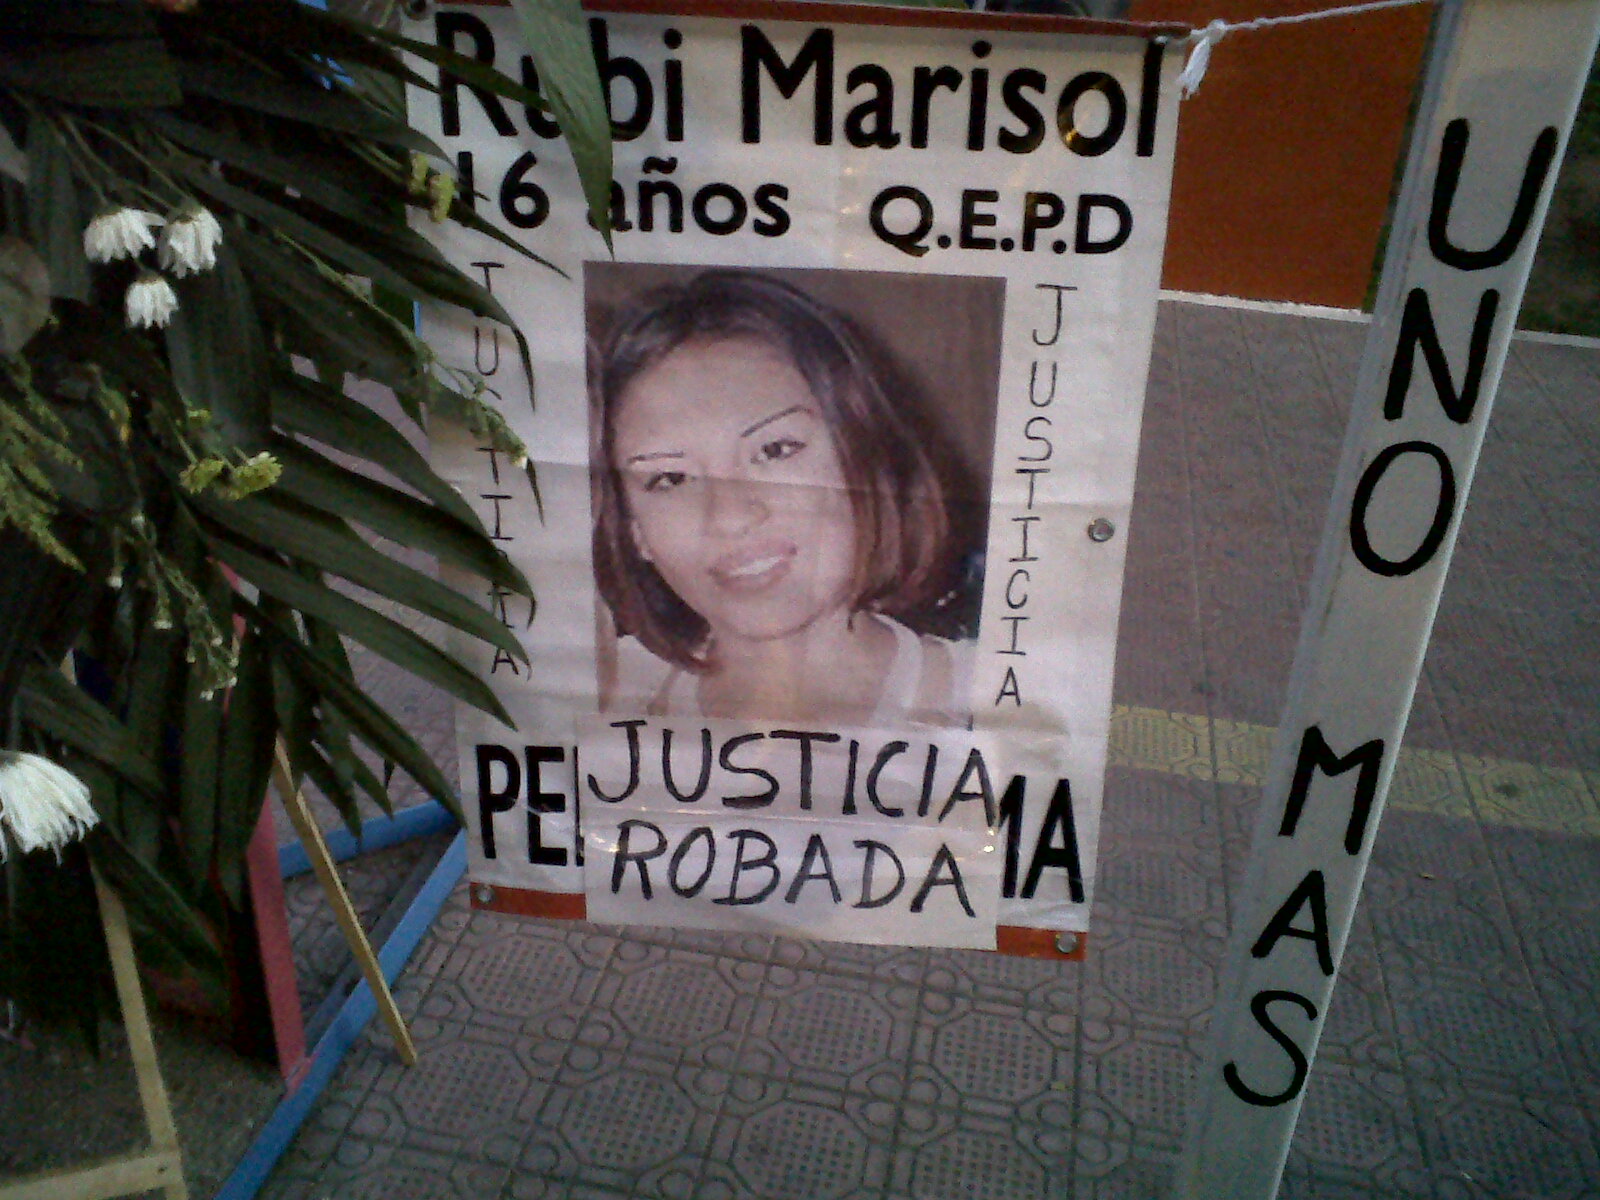 Rubi Marisol
16 años Q.E.P.D
JUSTICIA
JUSTICIA
JUSTICIA
ROBADA
UNO MAS